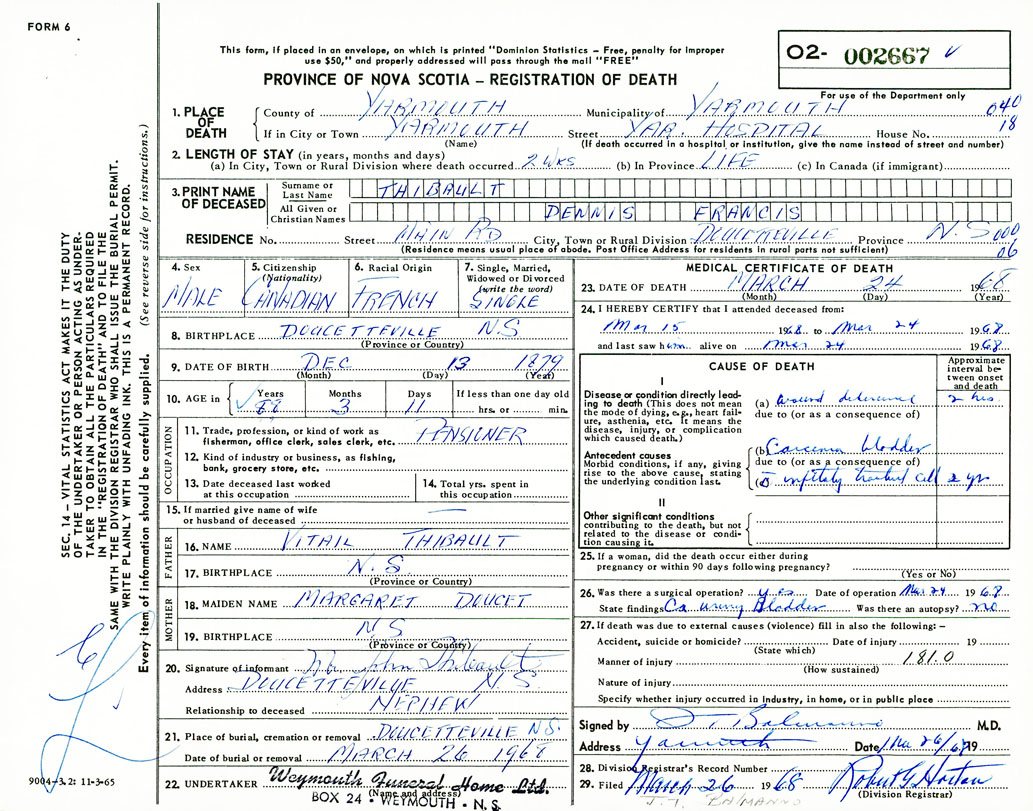 FORM 6
This form, if placed in an envelope, on which is printed "Dominion Statistics – Free, penalty for improper
use $50," and properly addressed will pass through the mail "FREE"
PROVINCE OF NOVA SCOTIA – REGISTRATION OF DEATH
O2- 002667
For use of the Department only
040
18
1. PLACE OF DEATH County of YARMOUTH Municipality of YARMOUTH
If in City or Town YARMOUTH Street YAR. HOSPITAL House No.
(Name) (If death occurred in a hospital or institution, give the name instead of street and number)
2. LENGTH OF STAY (in years, months and days)
(a) In City, Town or Rural Division where death occurred 2 WKS (b) In Province LIFE (c) In Canada (if immigrant)
3. PRINT NAME OF DECEASED Surname or Last Name THIBAULT
All Given or Christian Names DENNIS FRANCIS
RESIDENCE No. Street MAIN RD City, Town or Rural Division DOUCETTEVILLE Province N.S 000
06
(Residence means usual place of abode. Post Office Address for residents in rural parts not sufficient)
4. Sex MALE
5. Citizenship (Nationality) CANADIAN
6. Racial Origin FRENCH
7. Single, Married, Widowed or Divorced (write the word) SINGLE
8. BIRTHPLACE DOUCETTEVILLE N.S
(Province or Country)
9. DATE OF BIRTH DEC 13 1879
(Month) (Day) (Year)
10. AGE in Years 88 Months 3 Days 11 If less than one day old hrs. or min.
OCCUPATION
11. Trade, profession, or kind of work as PENSIONER
fisherman, office clerk, sales clerk, etc.
12. Kind of industry or business, as fishing,
bank, grocery store, etc.
13. Date deceased last worked
at this occupation
14. Total yrs. spent in
this occupation
15. If married give name of wife
or husband of deceased —
FATHER
16. NAME VITAIL THIBAULT
17. BIRTHPLACE N.S.
(Province or Country)
MOTHER
18. MAIDEN NAME MARGARET DOUCET
19. BIRTHPLACE N S
(Province or Country)
20. Signature of informant John Thibault
Address DOUCETTEVILLE N.S.
Relationship to deceased NEPHEW
21. Place of burial, cremation or removal DOUCETTEVILLE N.S.
Date of burial or removal MARCH 26 1968
22. UNDERTAKER Weymouth Funeral Home Ltd.
(Name and address)
BOX 24 • WEYMOUTH • N.S.
MEDICAL CERTIFICATE OF DEATH
23. DATE OF DEATH MARCH 24 1968
(Month) (Day) (Year)
24. I HEREBY CERTIFY that I attended deceased from:
Mar 15 1968 to Mar 24 1968
and last saw him alive on Mar 24 1968
CAUSE OF DEATH
Approximate interval between onset and death
I
Disease or condition directly leading to death (This does not mean the mode of dying, e.g., heart failure, asthenia, etc. It means the disease, injury, or complication which caused death.)
(a) wound 2 hrs.
due to (or as a consequence of)
Antecedent causes
Morbid conditions, if any, giving rise to the above cause, stating the underlying condition last.
(b) Carcinoma bladder
due to (or as a consequence of)
(c) cell 2 yr
II
Other significant conditions
contributing to the death, but not related to the disease or condition causing it.
25. If a woman, did the death occur either during
pregnancy or within 90 days following pregnancy?
(Yes or No)
26. Was there a surgical operation? yes Date of operation Mar 24 1968
State findings Ca urinary Bladder Was there an autopsy? no
27. If death was due to external causes (violence) fill in also the following: –
Accident, suicide or homicide? Date of injury 19
(State which)
Manner of injury 181.0
(How sustained)
Nature of injury
Specify whether injury occurred in industry, in home, or in public place
Signed by J T Balmanno M.D.
Address Yarmouth Date Mar 26/68 19
28. Division Registrar's Record Number
29. Filed March 26 1968 Robert G Horton
(Division Registrar)
J. T. BALMANNO
SEC. 14 – VITAL STATISTICS ACT MAKES IT THE DUTY
OF THE UNDERTAKER OR PERSON ACTING AS UNDER-
TAKER TO OBTAIN ALL THE PARTICULARS REQUIRED
IN THE "REGISTRATION OF DEATH" AND TO FILE THE
SAME WITH THE DIVISION REGISTRAR WHO SHALL ISSUE THE BURIAL PERMIT.
WRITE PLAINLY WITH UNFADING INK. THIS IS A PERMANENT RECORD.
Every item of information should be carefully supplied. (See reverse side for instructions.)
9004-3.2: 11-3-65